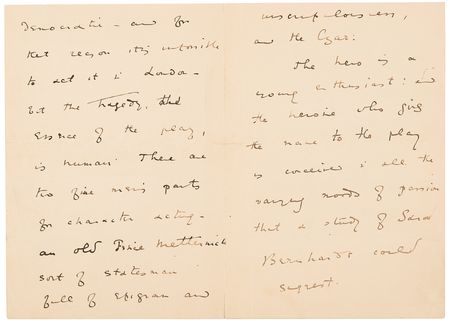 Democratic - and for
that reason it is impossible
to act it in London -
but the tragedy, the
essence of the play,
is human. There are
two fine men's parts
for character acting -
an old Prince Metternich
sort of statesman
full of epigram and
unscrupulousness,
and the Czar:
The hero is a
young enthusiast: and
the heroine who gives
the name to the play
is conceived in all the
varying moods of passion
that a study of Sarah
Bernhardt could
suggest.